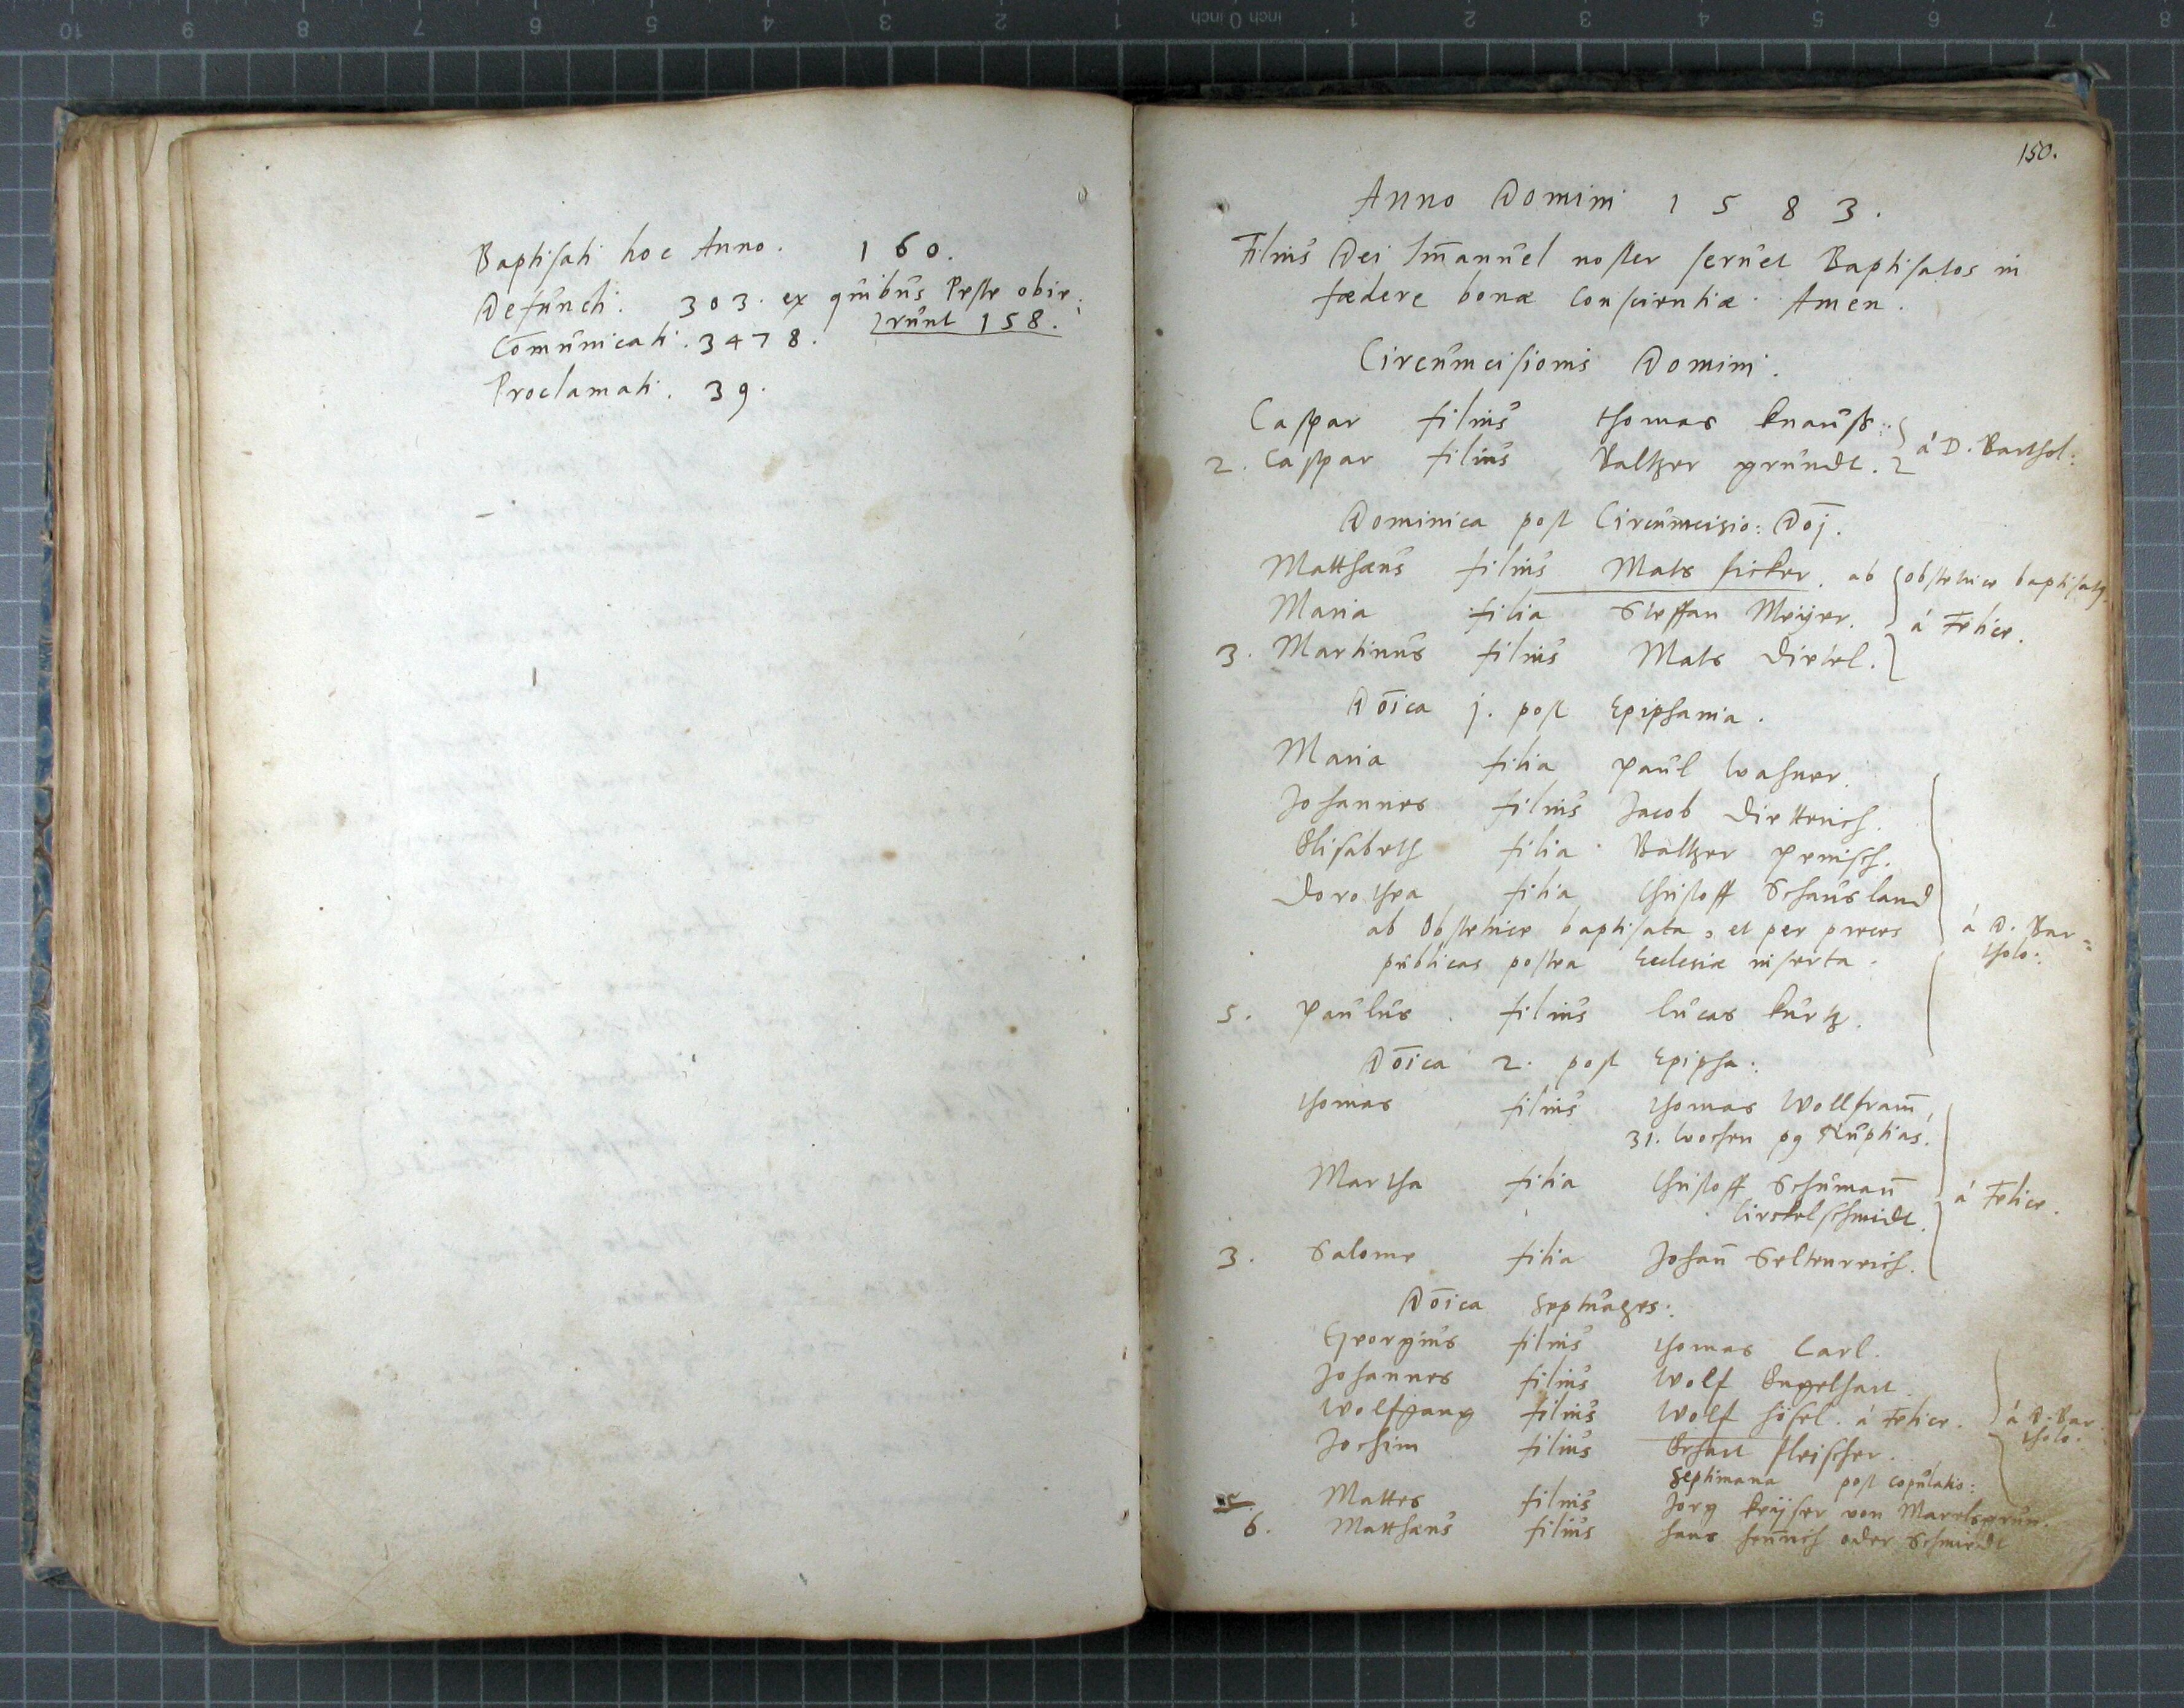 Baptisati hoc Anno. 160.
Defuncti. 303. ex quibus Peste obie:
runt 158.
Com̄unicati. 3478.
Proclamati. 39.
150.
Anno Domini 1583.
Filius Dei Im̄anuel noster seruet Baptisatos in
fœdere bonæ Conscientiæ. Amen.
Circumcisionis Domini.
Caspar filius Thomas Knauß. á D. Barthol:
2. Caspar filius Baltzer Grundt.
Dominica post Circumcisio: Dōj.
Matthæus filius Mats ficker. ab obstetrice baptisatꝰ
Maria filia Steffan Meÿer. á Felice.
3. Martinus filius Mats Dietel.
Dōica j. post Epiphania.
Maria filia Paul Wagner.
Johannes filius Jacob Diettrich.
Elisabeth filia Baltzer Penisch.
Dorothea filia Christoff Schausland
ab Obstetrice baptisata, et per preces á D. Bar=
publicas postea Ecclesiæ inserta. tholo:
5. Paulus filius Lucas Kurtz.
Dōica 2. post Epipha:
Thomas filius Thomas Wolfram̄,
31. Wochen pꝰ Nuptias.
Martha filia Christoff Schuman̄ á Felice.
Circkelschmidt.
3. Salome filia Johan̄ Seltenreich.
Dōica Septuages:
Georgius filius Thomas Carl.
Johannes filius Wolf Engelhart.
Wolfgang filius Wolf Hösel. á Felice. á D. Bar
Jochim filius Erhart Fleischer. tholo:
Septimana post copulatio:
Mattes filius Jorg Keÿser von
6. Matthæus filius Hans Hen̄rich oder Schmiedt